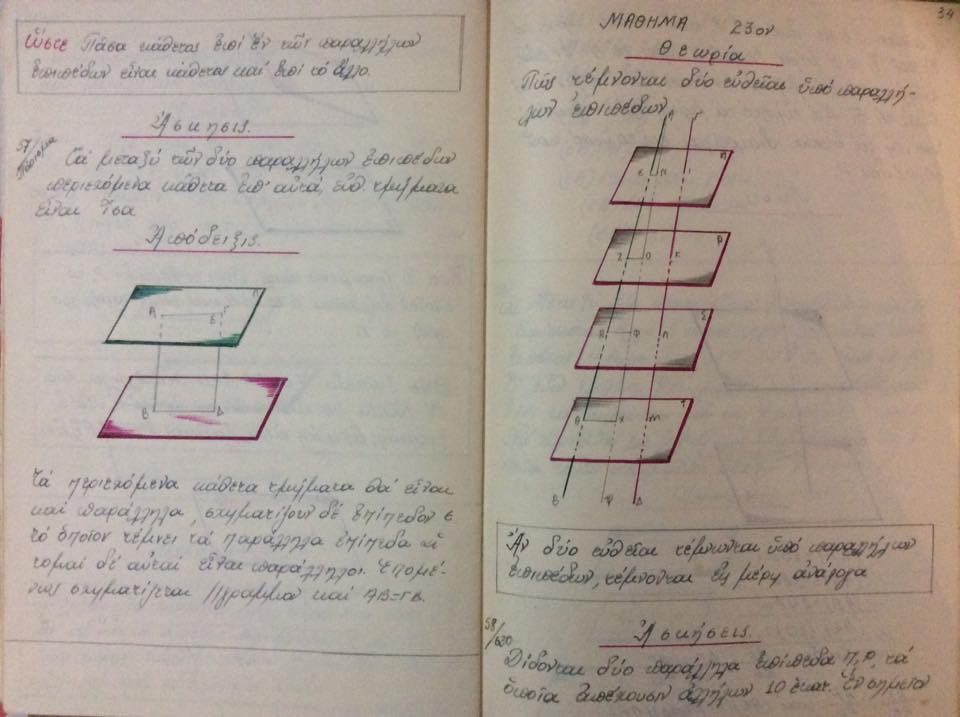 ὥστε Πᾶσα κάθετος ἐπί ἓν τῶν παραλλήλων
ἐπιπέδων εἶναι κάθετος καί ἐπί τό ἄλλο.
Ἀσκήσεις.
57/
Πόρισμα
Τά μεταξύ τῶν δύο παραλλήλων ἐπιπέδων
περιεχόμενα κάθετα ἐπ' αὐτά εὐθ τμήματα
εἶναι ἴσα
Ἀπόδειξις.
Π
Α Ε Γ
Β Δ
Τά περιεχόμενα κάθετα τμήματα θά εἶναι
καί παράλληλα, σχηματίζουν δέ ἐπίπεδον ε
τό ὁποῖον τέμνει τά παράλληλα ἐπίπεδα αἱ
τομαί δέ αὐταί εἶναι παράλληλοι. Ἑπομέ-
νως σχηματίζεται //γραμμον καί ΑΒ=ΓΔ.
34
ΜΑΘΗΜΑ 23ον
Θεωρία
Πῶς τέμνονται δύο εὐθεῖαι ὑπό παραλλή-
λων ἐπιπέδων
Α Γ
Ε Π Ι Π
Ζ Ο Κ Ρ
Η Φ Λ Σ
Θ Χ Μ Τ
Β Ψ Δ
Ἄν δύο εὐθεῖαι τέμνωνται ὑπό παραλλήλων
ἐπιπέδων, τέμνονται εἰς μέρη ἀνάλογα
Ἀσκήσεις.
58/620
Δίδονται δύο παράλληλα ἐπίπεδα Π, Ρ, τά
ὁποῖα ἀπέχουσιν ἀλλήλων 10 ἑκατ. Ἓν σημεῖον